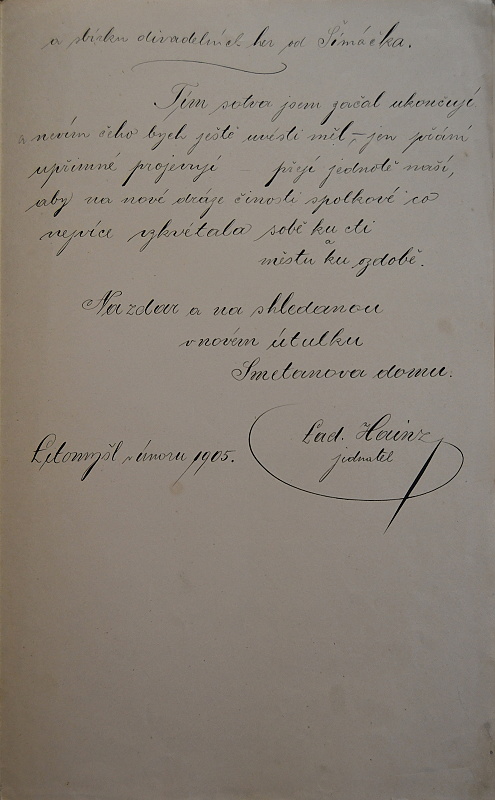 a sbírku divadelních her od Šimáčka.
Tím sotva jsem začal ukončuji
a nevím čeho bych ještě uvésti měl, – jen přání
upřímné projevuji – přeji jednotě naší,
aby na nové dráze činosti spolkové co
nejvíce vzkvétala sobě ku cti
a
městu ku ozdobě.
Na zdar a na shledanou
v novém útulku
Smetanova domu.
Litomyšl v únoru 1905.
Lad. Hainz
jednatel